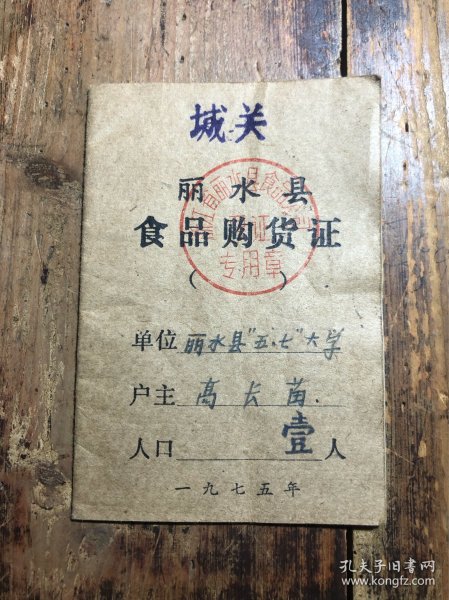 城关
丽水县
食品购货证
专用章
( )
单位 丽水县"五.七"大学
户主 高长苗.
人口 壹 人
一九七五年
孔夫子旧书网
www.kongfz.com